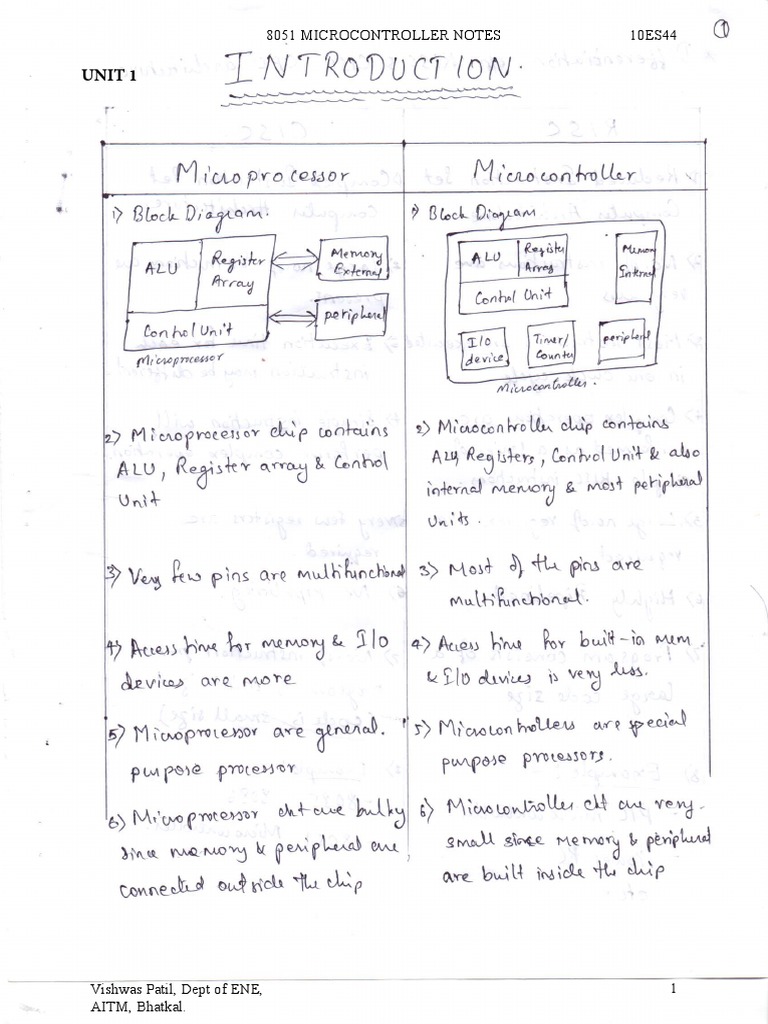 8051 MICROCONTROLLER NOTES 10ES44 1
UNIT 1
INTRODUCTION.
Microprocessor
1) Block Diagram.
ALU
Register
Array
Control Unit
Microprocessor
Memory
External
peripheral
2) Microprocessor chip contains
ALU, Register array & Control
Unit
3) Very few pins are multifunctional
4) Access time for memory & I/O
devices are more
5) Microprocessor are general.
purpose processor
6) Microprocessor ckt are bulky
since memory & peripheral are
connected outside the chip
Microcontroller
1) Block Diagram
ALU
Register
Array
Control Unit
Memory
Internal
I/O
device
Timer/
Counter
peripheral
Microcontroller.
2) Microcontroller chip contains
ALU, Registers, Control Unit & also
internal memory & most peripheral
Units.
3) Most of the pins are
multifunctional.
4) Access time for built-in mem.
& I/O devices is very less.
5) Microcontrollers are special
purpose processors.
6) Microcontroller ckt are very
small since memory & peripheral
are built inside the chip
Vishwas Patil, Dept of ENE, 1
AITM, Bhatkal.